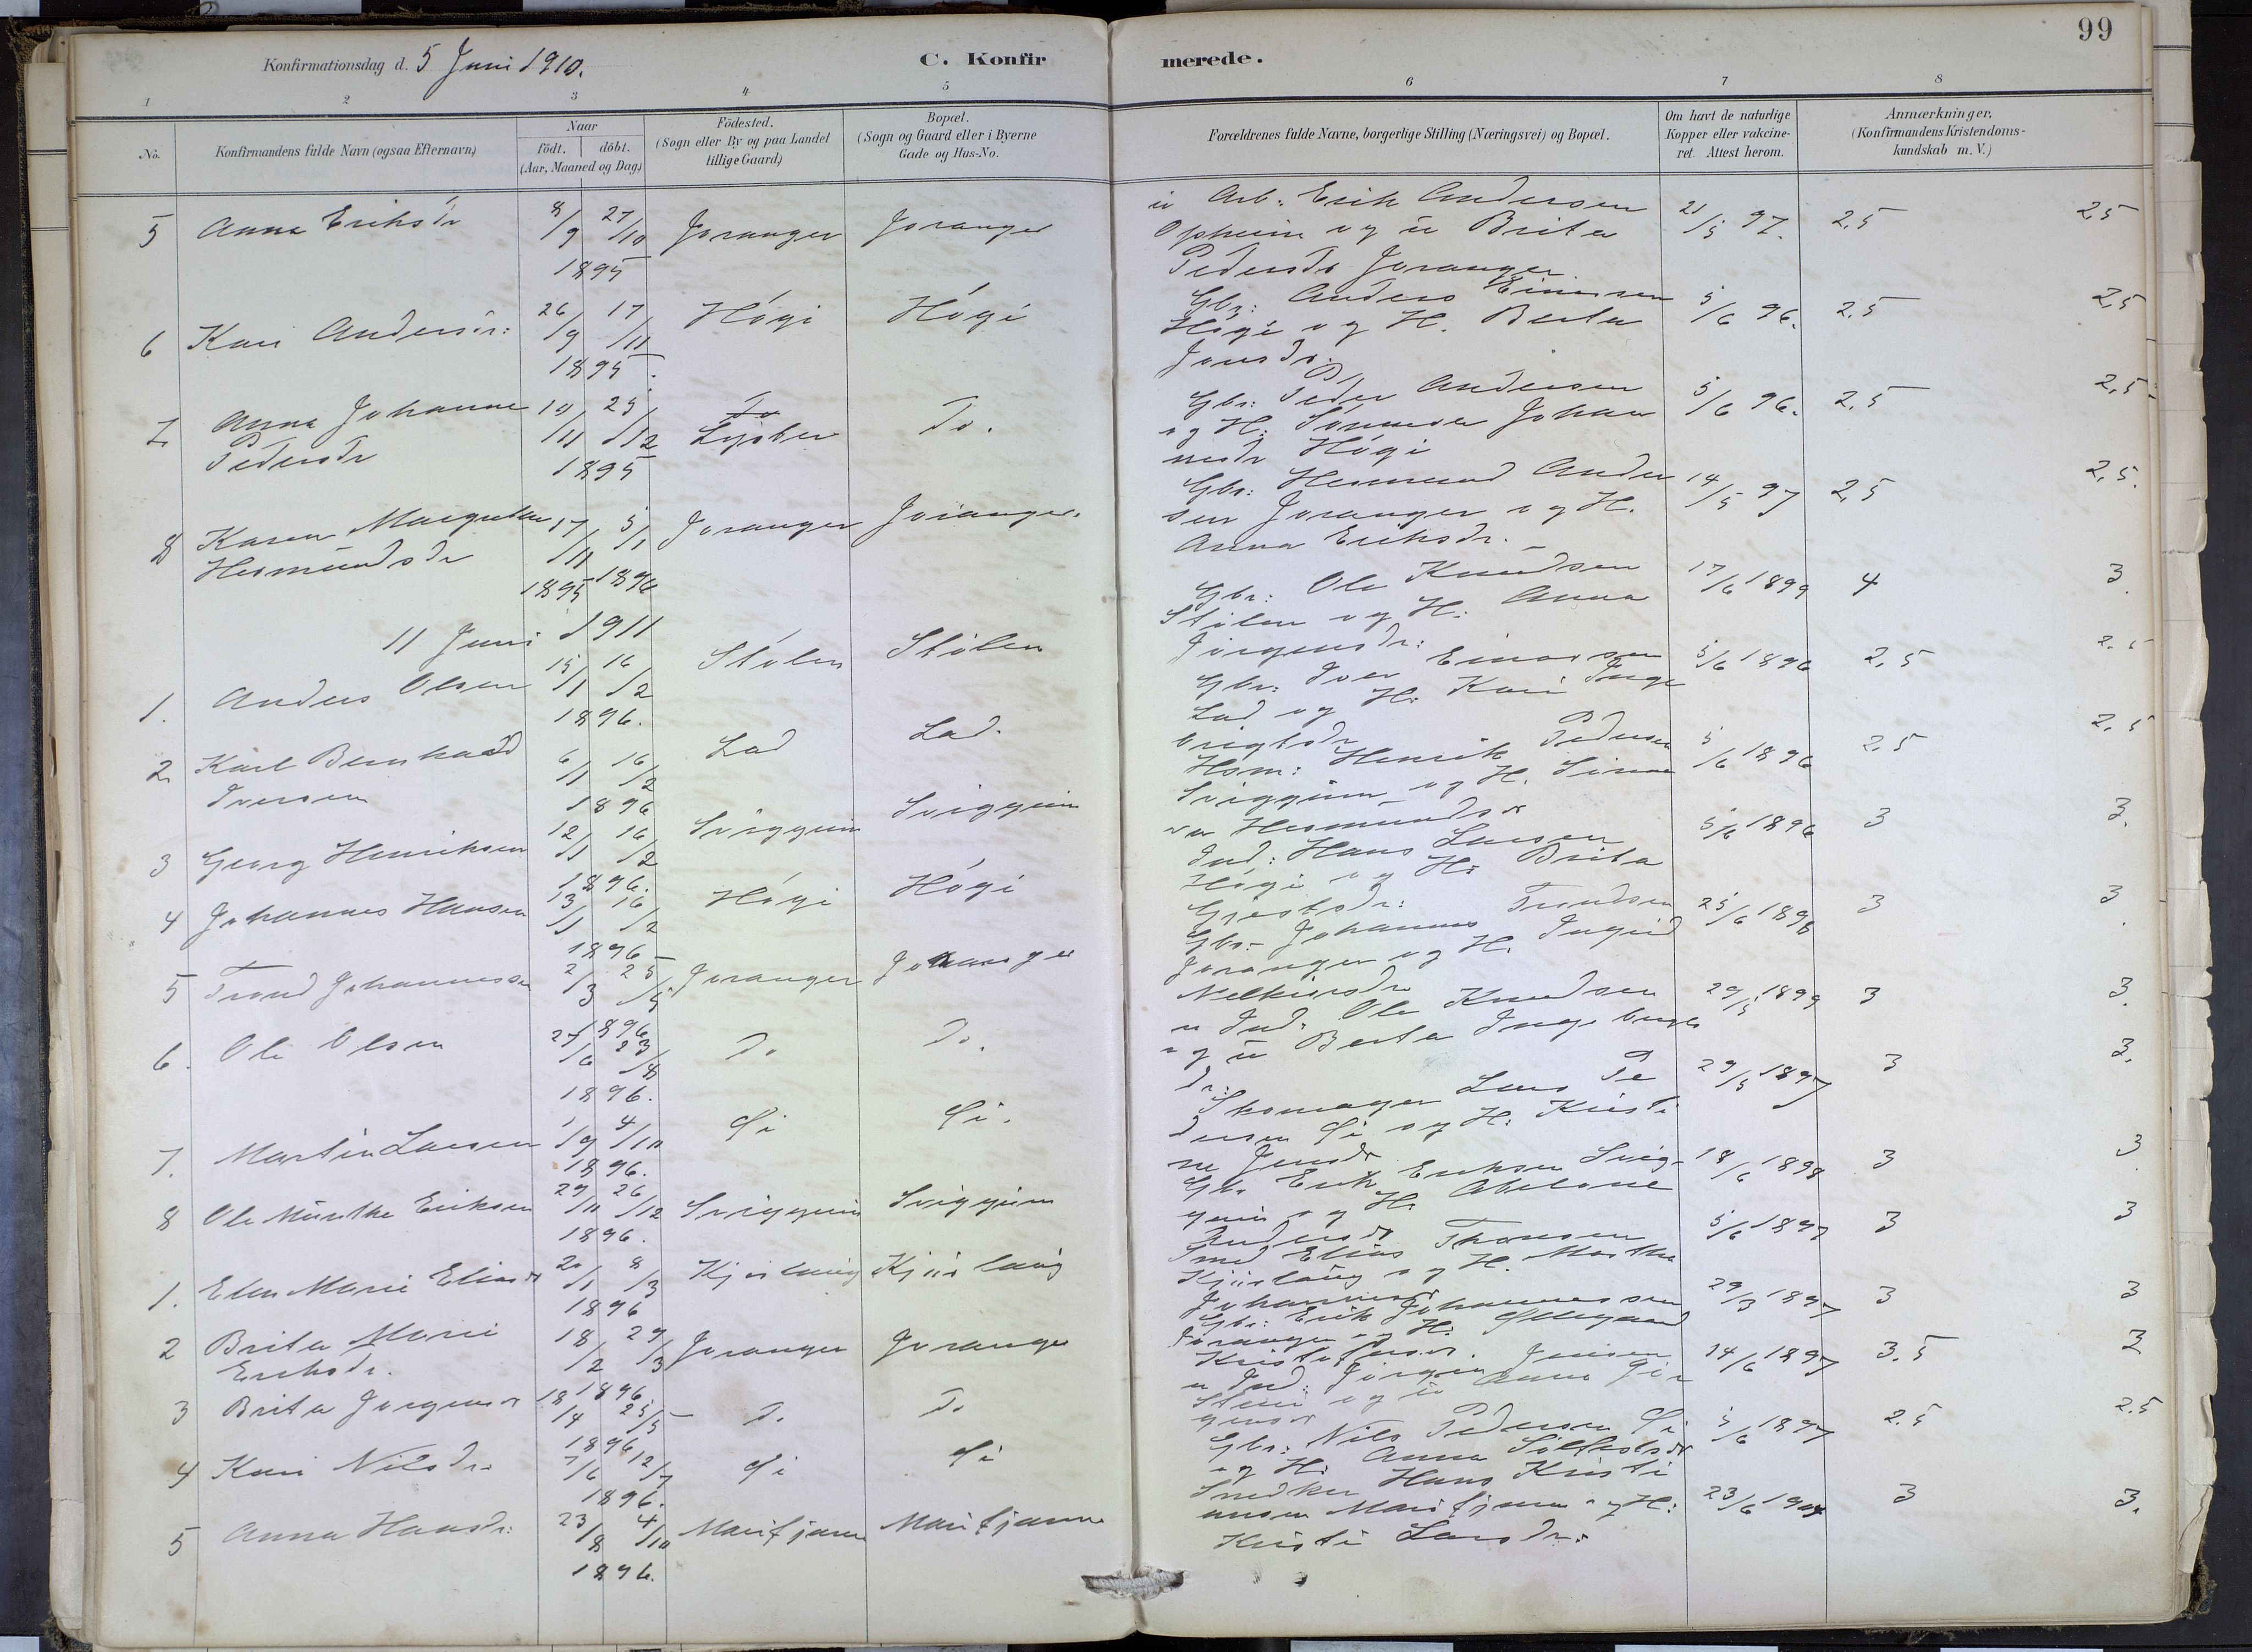 99
Konfirmationsdag d. 5 Juni 1910.
C. Konfirmerede.
1 2 3 4 5 6 7 8
No.
Konfirmandens fulde Navn (ogsaa Efternavn)
Naar
födt. döbt.
(Aar, Maaned og Dag)
Födested.
(Sogn eller By og paa Landet
tillige Gaard)
Bopæl.
(Sogn og Gaard eller i Byerne
Gade og Hus-No.
Forældrenes fulde Navne, borgerlige Stilling (Næringsvei) og Bopæl.
Om havt de naturlige
Kopper eller vakcine-
ret. Attest herom.
Anmærkninger,
(Konfirmandens Kristendoms-
kundskab m. V.)
5 Anna Eriksdr 8/9 27/10 Joranger Joranger
1895
u Arb: Erik Andersen 21/5 97. 2.5 2,5
Opheim og u Brita
Pedersdr Joranger
6 Kari Andersdr: 26/9 17/11 Högi Högi
1895.
Gbr: Anders Einarsen 5/6 96. 2.5 2,5
Högi og H. Berta
Jonsdr.
7 Anna Johanne 10/11 29/12 Do Do.
Pedersdr 1895
Gbr: Peder Andersen 5/6 96. 2.5 2,5
og H: Johan
nesdr Högi
8 Karen Margrethe 17/11 5/1 Joranger Joranger
Hermundsdr 1895 1896
Gbr: Hermund Ander 14/5 97 2,5 2,5.
sen Joranger og H.
Anna Eriksdr.
11 Juni 1911
1. Anders Olsen 15/1 16/2 Stölen Stölen
1896.
Gbr: Ole Knudsen 17/6 1899 4 3
Stölen og H: Anna
Jörgensdr:
2. Karl Bernhard 6/1 16/2 Lad Lad.
Iversen 1896
Gbr: Iver Einarsen 5/6 1896 2,5 2.5
Lad og H: Kari Inge
brigtsdr
3 Georg Henriksen 12/1 16/2 Sviggum Sviggum
1896.
Hsm: Henrik Pedersen 5/6 1896 2.5 2,5
Sviggum og H.
Hermundsdr
4 Johannes Hansen 13/1 16/2 Högi Högi
1896
Ind: Hans Larsen 5/6 1896 3 3.
Högi og H: Brita
5 Trond Johannessen 2/3 25/5 Joranger Joranger
1896
Gbr: Johannes Trondsen 25/6 1898 3 3
Joranger og H. Ingrid
Melkiorsdr
6. Ole Olsen 27/6 23/8 Do Do.
1896.
u Ind: Ole Knudsen 29/5 1899 3 3.
og u Berta Ingebrigts
dr:
7. Martin Larsen 1/9 4/10
1896.
Skomager Lars Pe 29/5 1897 3 3.
dersen og H: Kristi
ne Jensdr
8 Ole Eriksen 29/11 26/12 Sviggum Sviggum
1896.
Gbr Erik Eriksen Svig- 18/6 1898 3 3
gum og H: Abelone
Andersdr
1. Elen Marie Eliasdr 20/1 8/3
1896
Smed Elias Thomsen 5/6 1897 3 3
og H. Marthe
Johannesdr
2 Brita Marie 18/2 29/3 Joranger Joranger
Eriksdr. 1896
Gbr: Erik Johannessen 29/3 1897 3 3
Joranger og H:
Kristofersdr.
3 Brita Jörgensdr 18/4 25/5 Do Do
1896
u Ind: Jörgen Jensen 14/6 1897 3.5 3
og u Anna Jör
gensdr
4 Kari Nilsdr. 7/6 12/7
1896.
Gbr: Nils Pedersen 5/6 1897 2.5 2.5
og H: Anna
5 Anna Hansdr: 23/8 4/10 Marifjæren Marifjæren
1896.
Snedker Hans Kristi 23/6 1904 3 3.
ansen Marifjæren og H:
Kristi Larsdr: